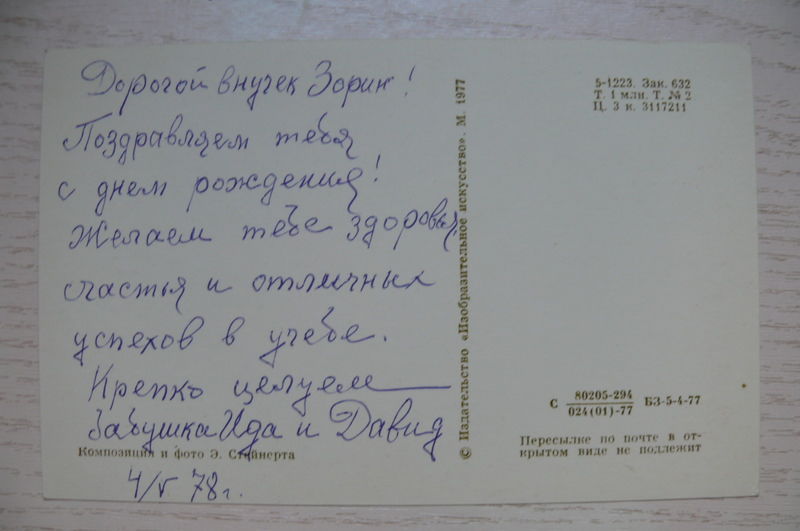 Дорогой внучек Зорик!
Поздравляем тебя
с днем рождения!
Желаем тебе здоровья,
счастья и отличных
успехов в учебе.
Крепко целуем
бабушка Ида и Давид
4/V 78 г.
Композиция и фото Э. Стейнерта
© Издательство «Изобразительное искусство». М. 1977
5-1223. Зак. 632
Т. 1 млн. Т. № 2
Ц. 3 к. 3117211
С 80205-294 БЗ-5-4-77
024(01)-77
Пересылке по почте в от-
крытом виде не подлежит